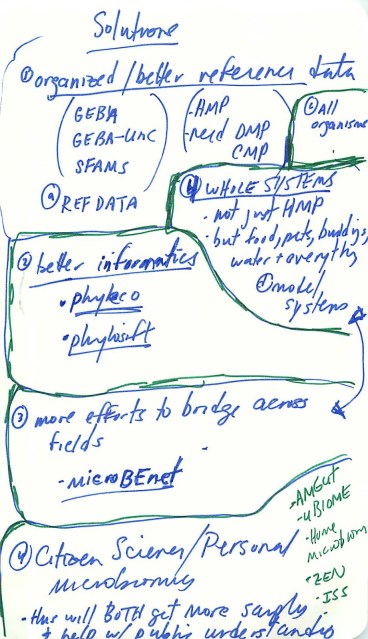 Solutions
① organized/better reference data
GEBA
GEBA-Unc
SFAMS
ⓐ REF DATA
-HMP
-need DMP
CMP
ⓒ All
organisms
ⓑ WHOLE SYSTEMS
• not just HMP
• but food, pets, buildings,
water + everything
ⓓ model
systems
② better informatics
• phyleco
• phylosift
③ more efforts to bridge across
fields
- microBEnet
④ Citizen Science/Personal
microbiomics
- AMGUT
- uBIOME
• Home
microbiome
• ZEN
• ISS
• this will BOTH get more samples
+ help w/ public understanding